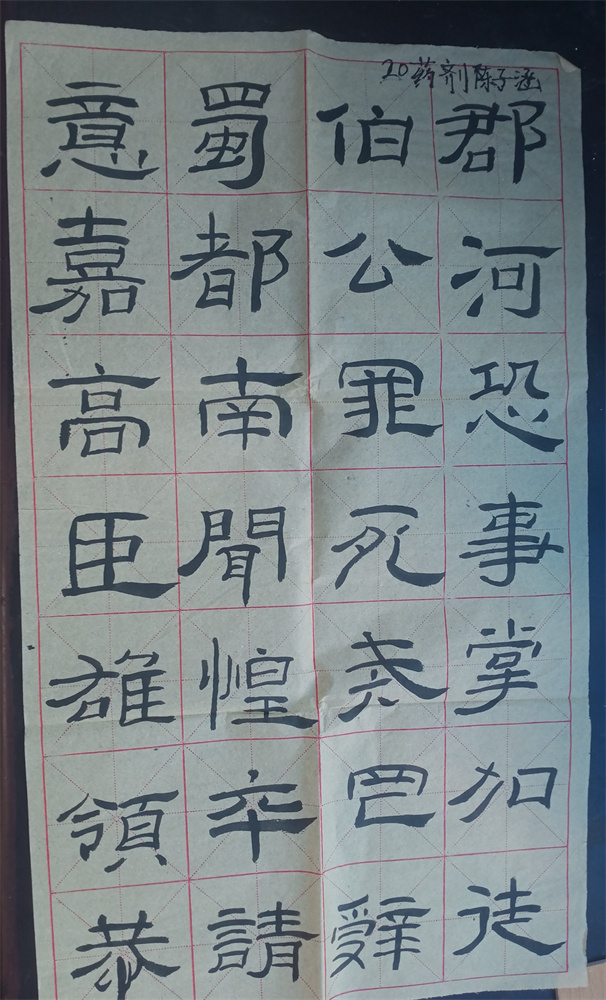 20药剂陈子涵
郡河恐事掌加徒
伯公罪死尧罡辭
蜀都南聞惶卒請
意嘉高臣雄領恭